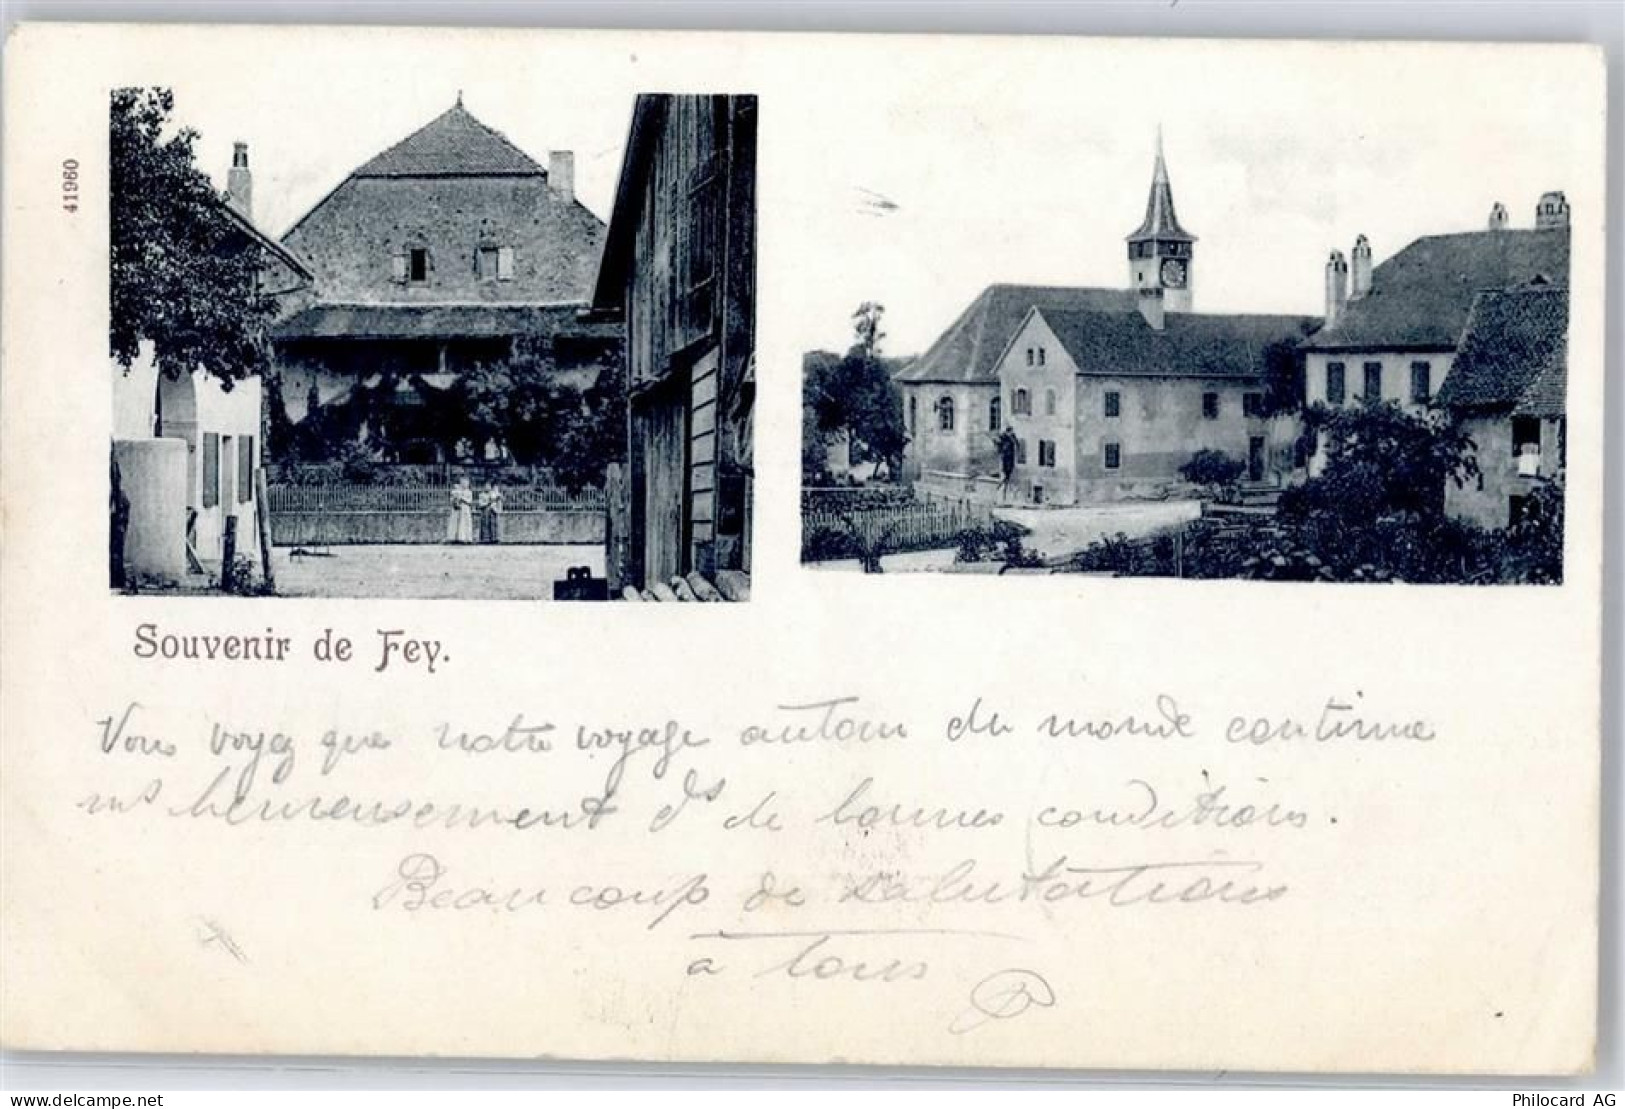 41960
Souvenir de Fey.
Vous voyez que notre voyage autour du monde continue
heureusement ds de bonnes conditions.
Beaucoup de salutations
à tous
delcampe.net
Philocard AG